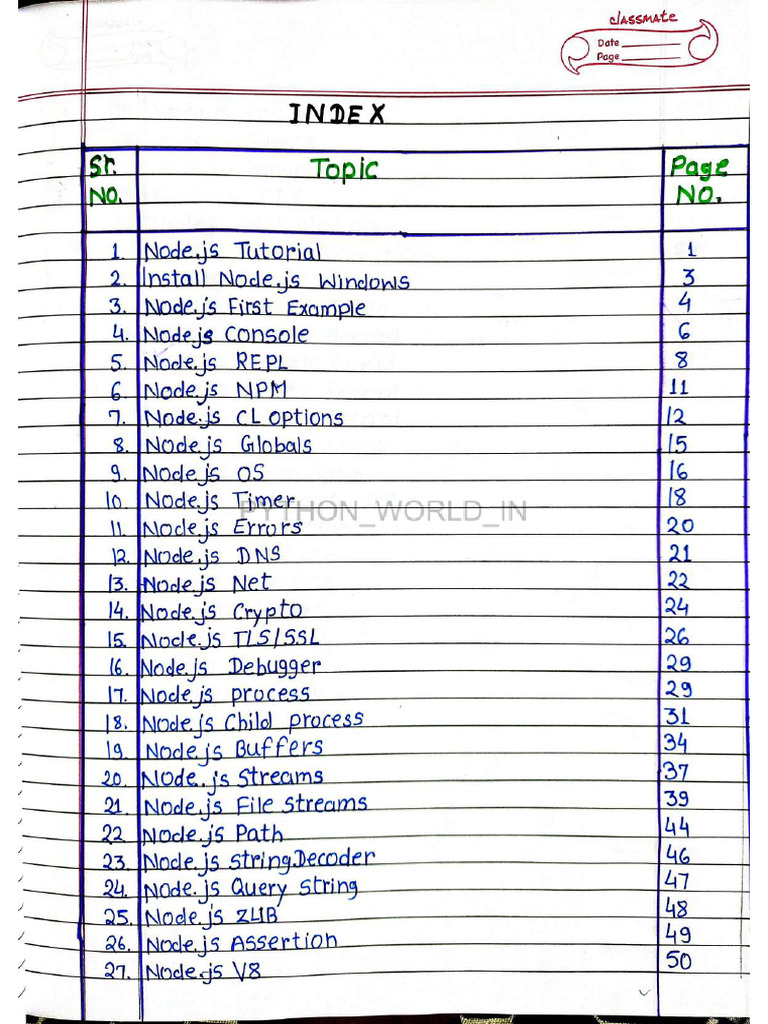 classmate
Date
Page
INDEX
Sr. No. Topic Page No.
1. Node.js Tutorial 1
2. Install Node.js Windows 3
3. Node.js First Example 4
4. Node.js Console 6
5. Node.js REPL 8
6. Node.js NPM 11
7. Node.js CL Options 12
8. Node.js Globals 15
9. Node.js OS 16
10. Node.js Timer 18
PYTHON_WORLD_IN
11. Node.js Errors 20
12. Node.js DNS 21
13. Node.js Net 22
14. Node.js Crypto 24
15. Node.js TLS/SSL 26
16. Node.js Debugger 29
17. Node.js process 29
18. Node.js Child process 31
19. Node.js Buffers 34
20. Node.js Streams 37
21. Node.js File Streams 39
22 Node.js Path 44
23. Node.js String.Decoder 46
24. Node.js Query String 47
25. Node.js ZLIB 48
26. Node.js Assertion 49
27. Node.js V8 50